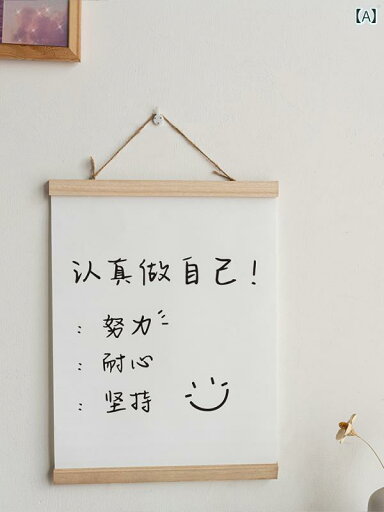 【A】
认真做自己！
：努力
：耐心
：坚持